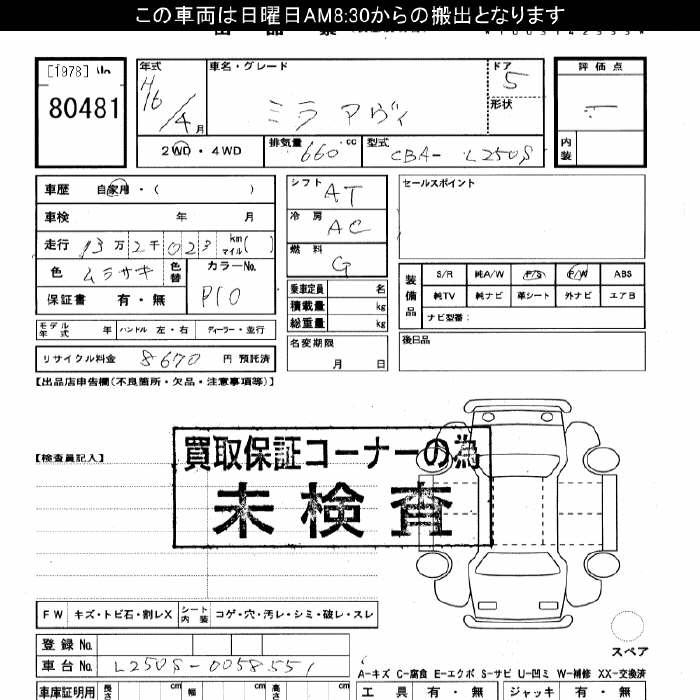 この車両は日曜日AM8:30からの搬出となります
[1978]
80481
年式
H16/4月
車名・グレード
ミラ アヴィ
ドア
5
形状
評価点
内装
2WD・4WD
排気量
660 cc
型式
CBA- L250S
車歴 自家用・( )
車検 年 月
走行 13万2千023 km マイル( )
色 ムラサキ 色替
カラーNo.
P10
保証書 有・無
シフト
AT
冷房
AC
燃料
G
乗車定員 名
積載量 kg
総重量 kg
名変期限
月 日
セールスポイント
装備品
S/R 純A/W P/S P/W ABS
純TV 純ナビ 革シート 外ナビ エアB
ナビ型番:
後日品
モデル年式 年 ハンドル 左・右 ディーラー・並行
リサイクル料金 8670 円 預託済
【出品店申告欄(不良箇所・欠品・注意事項等)】
【検査員記入】
買取保証コーナーの為
未検査
FW キズ・トビ石・割レX シート内装 コゲ・穴・汚レ・シミ・破レ・スレ
登録No.
車台No. L250S-0058551
スペア
A-キズ C-腐食 E-エクボ S-サビ U-凹ミ W-補修 XX-交換済
車庫証明用 長さ cm 幅 cm 高さ cm
工具 有・無 ジャッキ 有・無